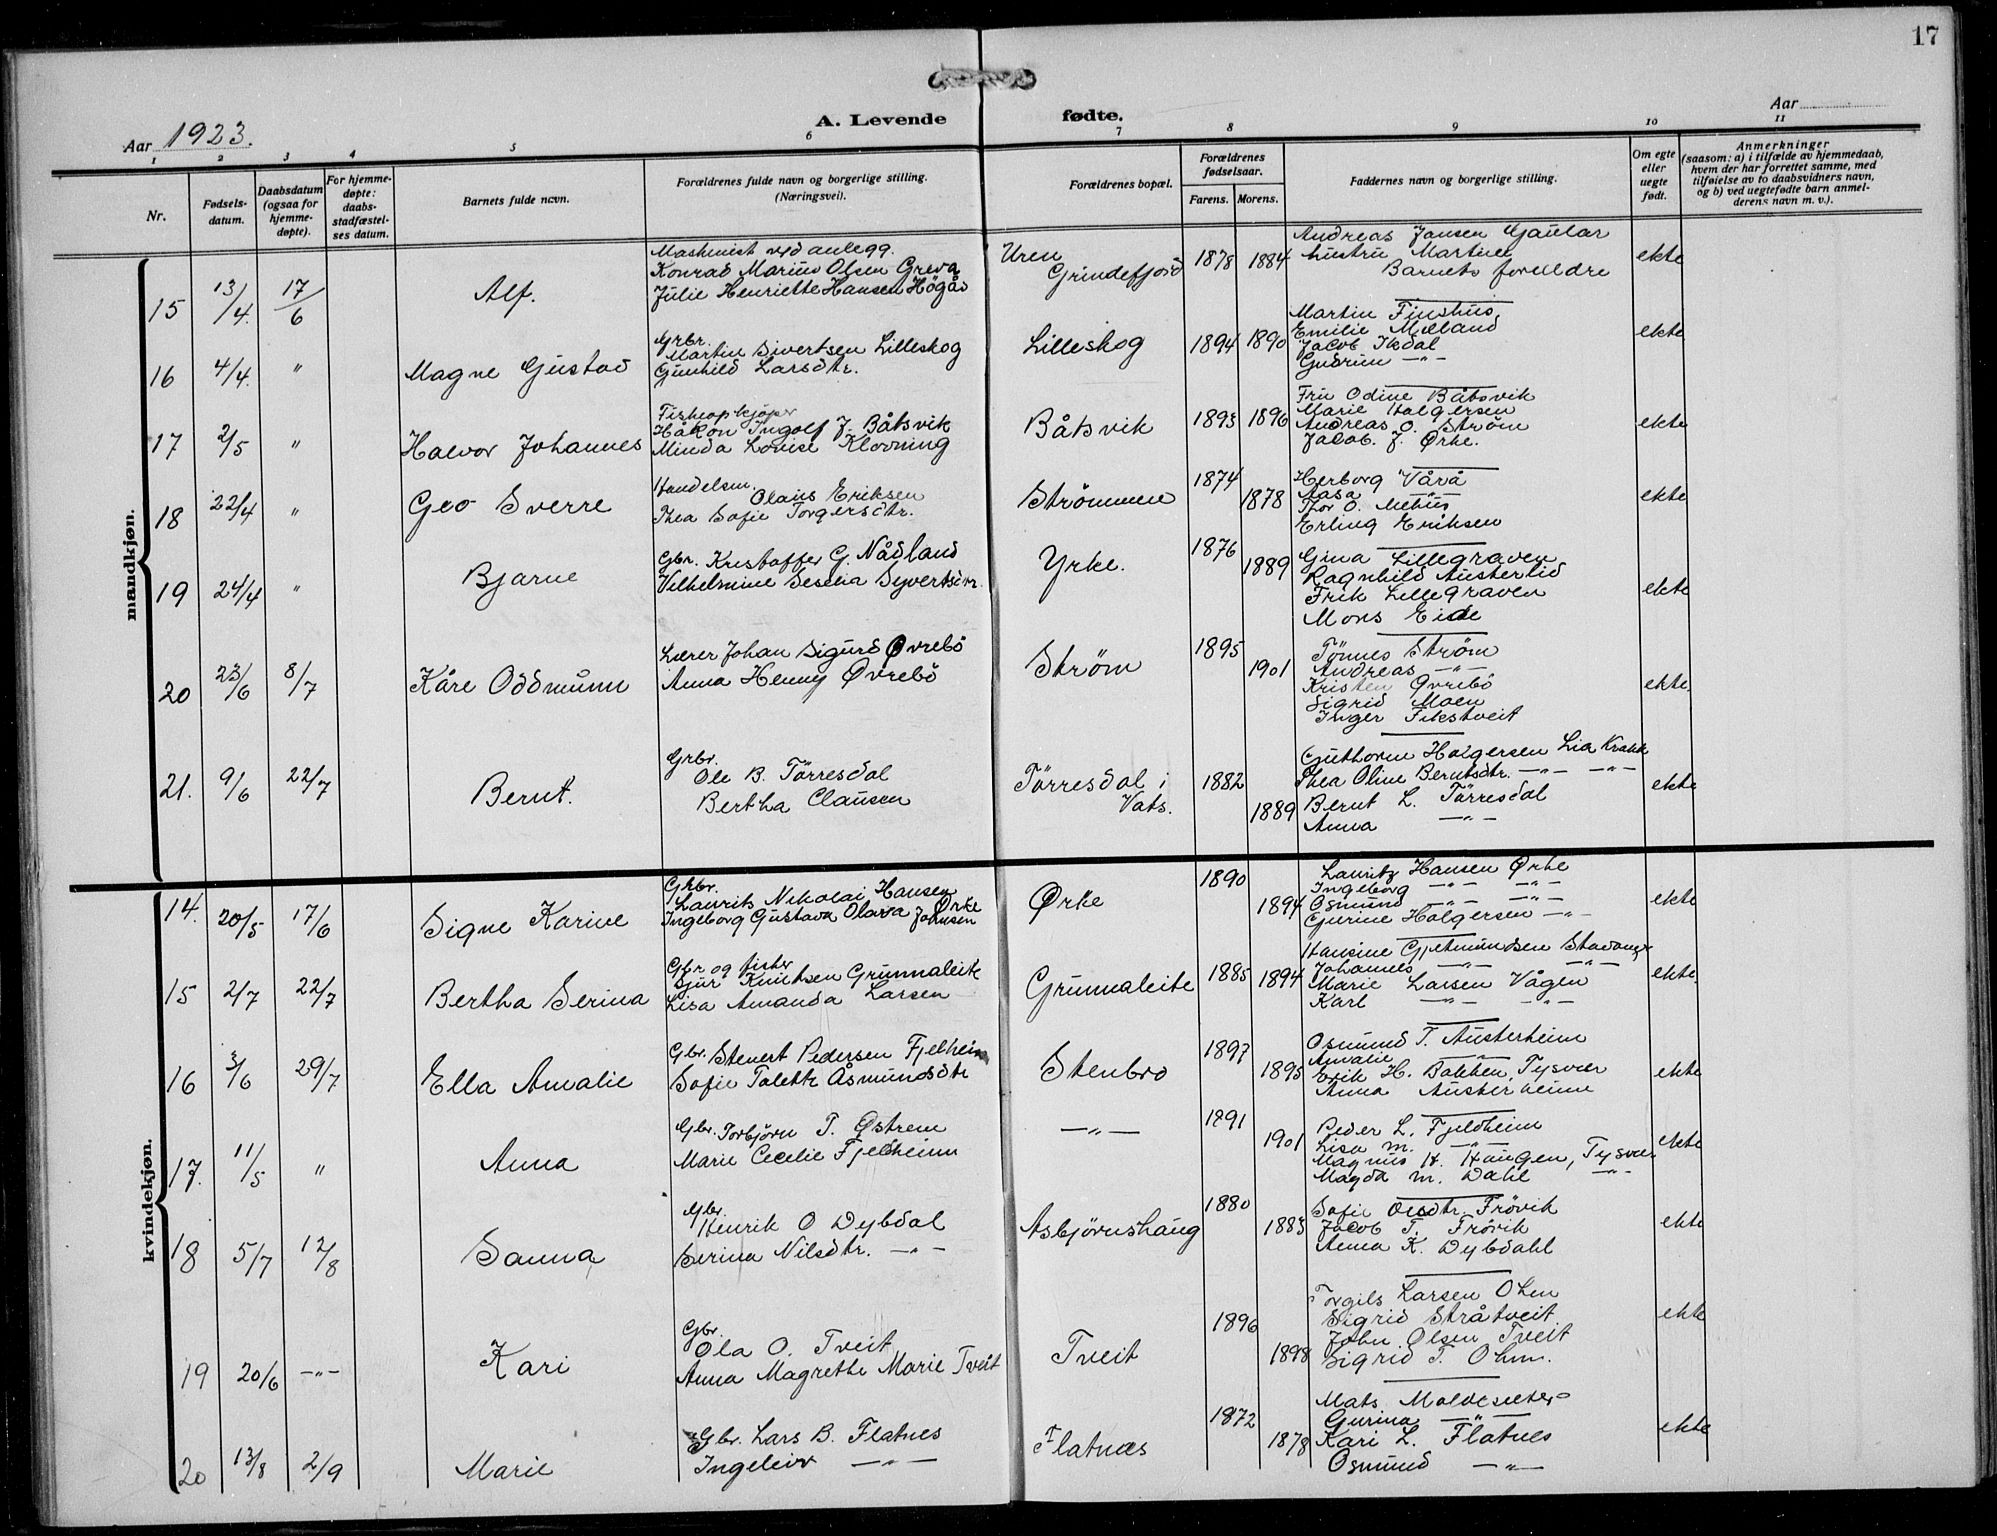 17
Aar 1923.
A. Levende fødte.
Aar
1 2 3 4 5 6 7 8 9 10 11
Nr.
Fødsels-
datum.
Daabsdatum
(ogsaa for
hjemme-
døpte).
For hjemme-
døpte:
daabs-
stadfæstel-
ses datum.
Barnets fulde navn.
Forældrenes fulde navn og borgerlige stilling.
(Næringsvei).
Forældrenes bopæl.
Forældrenes
fødselsaar.
Farens. Morens.
Faddernes navn og borgerlige stilling.
Om egte
eller
uegte
født.
Anmerkninger
(saasom: a) i tilfælde av hjemmedaab,
hvem der har forrettet samme, med
tilføielse av to daabsvidners navn,
og b) ved uegtefødte barn anmel-
derens navn m. v.).
mandkjøn.
15 13/4. 17/6 Alf.
Maskinist ved anlegg.
Konrad Marius Olsen Greva
Julie Henriette Hansen Högås
Uren
Grindefjord
1878 1884
Andreas Jansen Gautar
hustru Martine
Barnets foreldre
ekte
16 4/4. " Magne Gustav
Grbr.
Martin Sivertsen Lilleskog
Gunhild Larsdtr.
Lilleskog
1894 1890
Martin Finshus,
Emilie Mæland
Jacob Ikdal
Gudrun —"—
ekte
17 2/5 " Halvor Johannes
Fiskeopkjøper
Håkon Ingolf J. Båtsvik
Minda Lovise Klovning
Båtsvik
1893 1896
Fru Odine Båtsvik
Marie Holgersen
Andreas O. Strøm
Jacob. J. Ørke.
ekte
18 22/4 " Geo Sverre
Handelsm.
Olaus Eriksen
Thea Sofie Torgersdtr.
Strømmen
1874 1878
Herborg Vårå
Aasa —"—
Thor O. Mehus
Erling Eriksen
ekte
19 24/4 " Bjarne
Gbr. Kristoffer G. Nådland
Vilhelmine Seselia Syvertsdtr.
Yrke.
1876 1889
Gina Lillegraven
Ragnhild Austerlid
Erik Lillegraven
Mons Eide
ekte
20 23/6 8/7 Kåre Oddmunn
Lærer Johan Sigurd Øvrebö
Anna Henny Øvrebö
Strøm
1895 1901
Tönnes Strøm
Andreas —"—
Kristen Øvrebö
Sigrid Moen
Inger Fikstveit
ekte.
21. 9/6 22/7 Bernt.
Grbr.
Ole B. Törresdal
Bertha Clausen
Törresdal i
Vats.
1882 1889
Guthorm Holgersen Lia
Thea Oline Berntsdtr. —"— —"—
Bernt L. Törresdal
Anna —"—
ekte
kvindekjøn.
14. 20/5 17/6 Signe Karine
Grbr.
Laurits Nikolai Hansen Ørke
Ingeborg Gustava Olava Johnsen
Ørke
1890 1894
Lauritz Hansen Ørke
Ingeborg —"— —"—
Osmund —"— —"—
Gurine Holgersen —"—
ekte
15 2/7 22/7 Bertha Serina
Gbr. og fisker
Sjur Knutsen Grunnaleite
Lisa Amanda Larsen
Grunnaleite
1885 1894
Hansine Gjetmundsen Stavanger
Johannes —"— —"—
Marie Larsen Vågen
Karl —"— —"—
ekte.
16 3/6 29/7 Ella Amalie
Gbr. Stenert Pedersen Fjelheim
Sofie Talette Åsmundsdtr
Stenbro
1897 1895
Osmund T. Austerheim
Amalie —"—
Erik H. Bakken, Tysvær
Anna Austerheim
ekte
17. 11/5 " Anna
Gbr. Torbjörn T. Østrem
Marie Cecelie Fjelheim
—"—
1891 1901
Peder L. Fjeldheim
Lisa M. —"—
Magnus H. Haugen, Tysvær
Magda M. Dahl —"—
ekte
18 5/7 12/8 Sanna
Gbr.
Henrik O Dybdal
Serina Nilsdtr. —"—
Asbjørnshaug
1880 1883
Sofie Olsdtr. Frövik
Jacob T. Frövik
Anna K. Dybdahl
ekte
19 20/6 —"— Kari
Gbr.
Ola O. Tveit
Anna Magrethe Marie Tveit
Tveit
1896 1898
Torgils Larsen Ohm
Sigrid Stråtveit
John Olsen Tveit
Sigrid T. Ohm.
ekte
20 13/8 2/9 Marie
Gbr. Lars B. Flatnes
Ingeleiv —"—
Flatnæs
1872 1878
Mats Moldesæter
Gurina —"—
Kari L. Flatnes
Osmund —"—
ekte